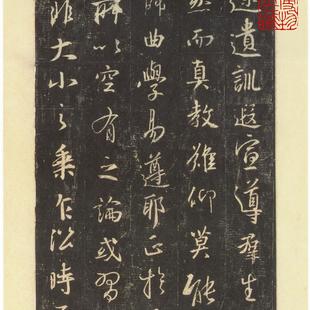 遺訓遐宣導羣生
然而真教難仰莫能
歸曲學易遵耶正於
所以空有之論或習
非大小之乘乍沿時